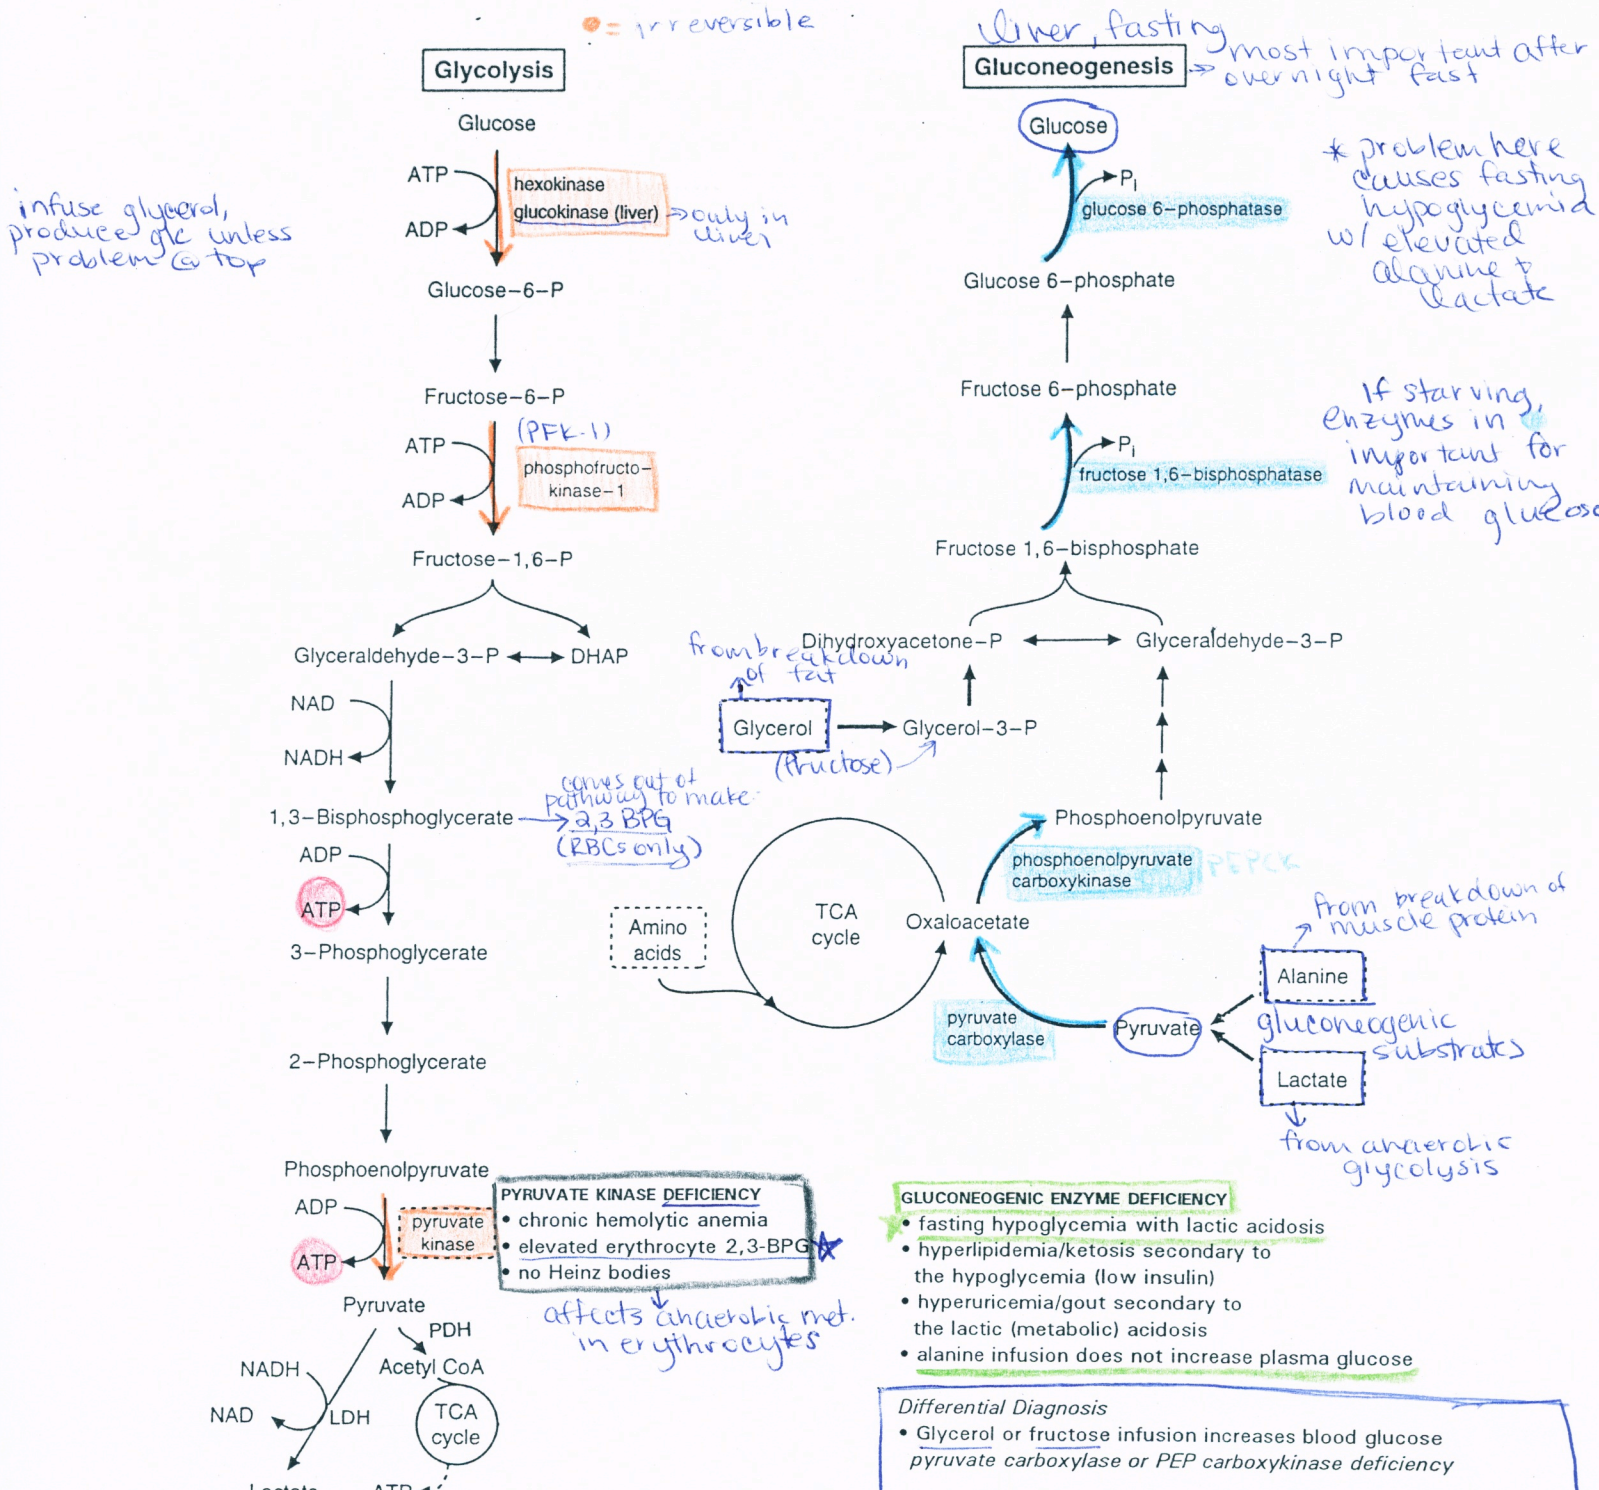 = irreversible
Glycolysis
Glucose
ATP
ADP
hexokinase
glucokinase (liver)
only in
liver
infuse glycerol,
produce glc unless
problem @ top
Glucose-6-P
Fructose-6-P
(PFK-1)
ATP
ADP
phosphofructo-
kinase-1
Fructose-1,6-P
Glyceraldehyde-3-P
DHAP
NAD
NADH
1,3-Bisphosphoglycerate
comes out of
pathway to make
2,3 BPG
(RBCs only)
ADP
ATP
3-Phosphoglycerate
2-Phosphoglycerate
Phosphoenolpyruvate
ADP
ATP
pyruvate
kinase
PYRUVATE KINASE DEFICIENCY
• chronic hemolytic anemia
• elevated erythrocyte 2,3-BPG
• no Heinz bodies
affects anaerobic met.
in erythrocytes
Pyruvate
PDH
NADH
Acetyl CoA
NAD
LDH
TCA
cycle
Lactate
ATP
liver, fasting
Gluconeogenesis
most important after
overnight fast
Glucose
Pi
glucose 6-phosphatase
* problem here
causes fasting
hypoglycemia
w/ elevated
alanine +
lactate
Glucose 6-phosphate
Fructose 6-phosphate
Pi
fructose 1,6-bisphosphatase
If starving,
enzymes in
important for
maintaining
blood glucose
Fructose 1,6-bisphosphate
Dihydroxyacetone-P
Glyceraldehyde-3-P
from breakdown
of fat
Glycerol
Glycerol-3-P
(fructose)
Phosphoenolpyruvate
phosphoenolpyruvate
carboxykinase
PEPCK
Amino
acids
TCA
cycle
Oxaloacetate
pyruvate
carboxylase
Pyruvate
from breakdown of
muscle protein
Alanine
gluconeogenic
substrates
Lactate
from anaerobic
glycolysis
GLUCONEOGENIC ENZYME DEFICIENCY
• fasting hypoglycemia with lactic acidosis
• hyperlipidemia/ketosis secondary to
the hypoglycemia (low insulin)
• hyperuricemia/gout secondary to
the lactic (metabolic) acidosis
• alanine infusion does not increase plasma glucose
Differential Diagnosis
• Glycerol or fructose infusion increases blood glucose
pyruvate carboxylase or PEP carboxykinase deficiency